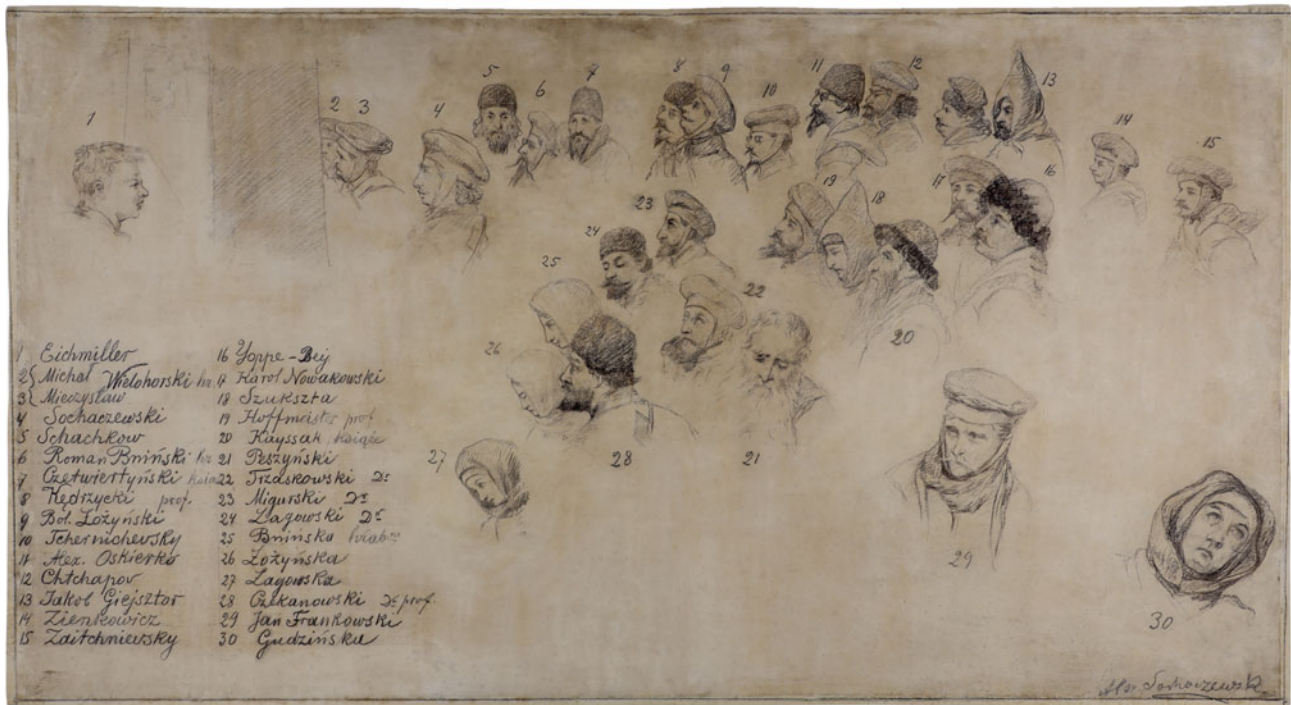 1
2
3
4
5
6
7
8
9
10
11
12
13
14
15
16
17
18
19
20
21
22
23
24
25
26
27
28
29
30
1 Eichmiller
2 Michał Wielohorski hr.
3 Mieczysław
4 Sochaczewski
5 Schachkow
6 Roman Bniński hr.
7 Czetwiertyński
8 Kędrzycki prof.
9 Bol. Łożyński
10 Tchernichevsky
11 Alex. Oskierko
12 Chtchapov
13 Jakób Giejsztor
14 Zienkowicz
15 Zaitchniewsky
16 Yoppe-Bej
17 Karol Nowakowski
18 Szukszta
19 Hoffmeister prof
20 Kayssak książe
21 Peszyński
22 Trzaskowski Dr
23 Migurski Dr
24 Łagowski Dr
25 Bnińska
26 Łożyńska
27 Łagowska
28 Czekanowski Dr prof.
29 Jan Frankowski
30 Gudzińska
Alex. Sochaczewski